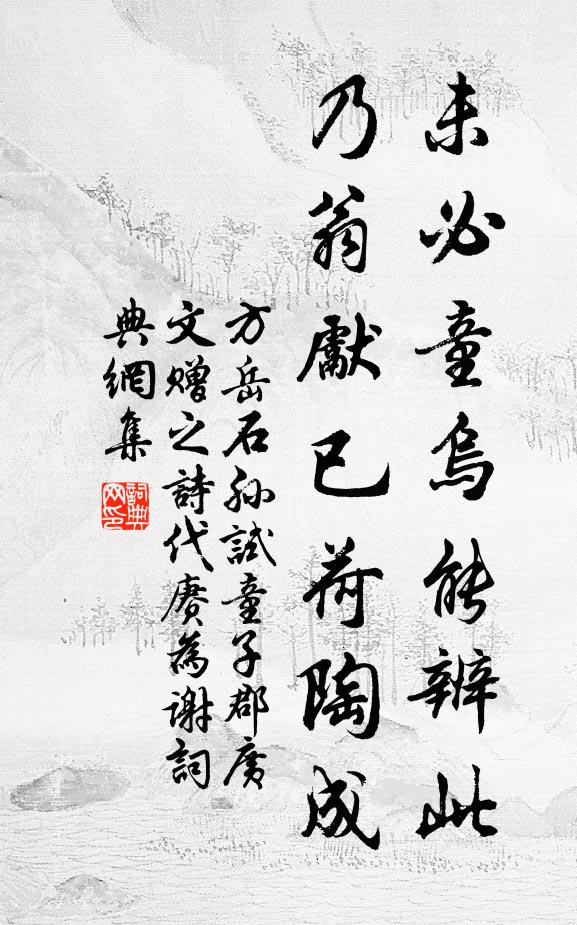 未必童烏能辨此
乃翁獻已荷陶成
方岳石孫試童子郡廣
文贈之詩代賡為謝詞
典網集
詞典
网印